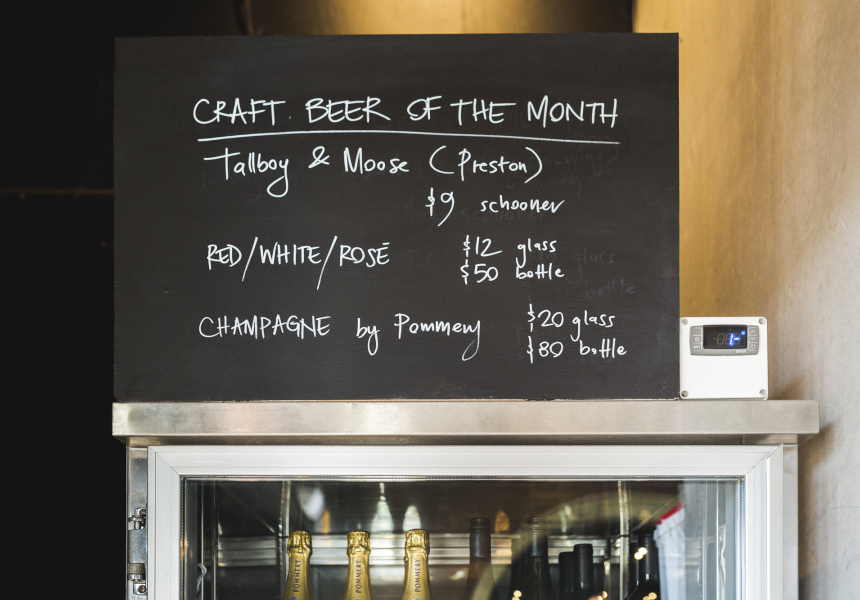 CRAFT. BEER OF THE MONTH
Tallboy & Moose (Preston)
$9 schooner
RED/WHITE/ROSÉ $12 glass
$50 bottle
CHAMPAGNE by Pommery $20 glass
$80 bottle
POMMERY
POMMERY
POMMERY